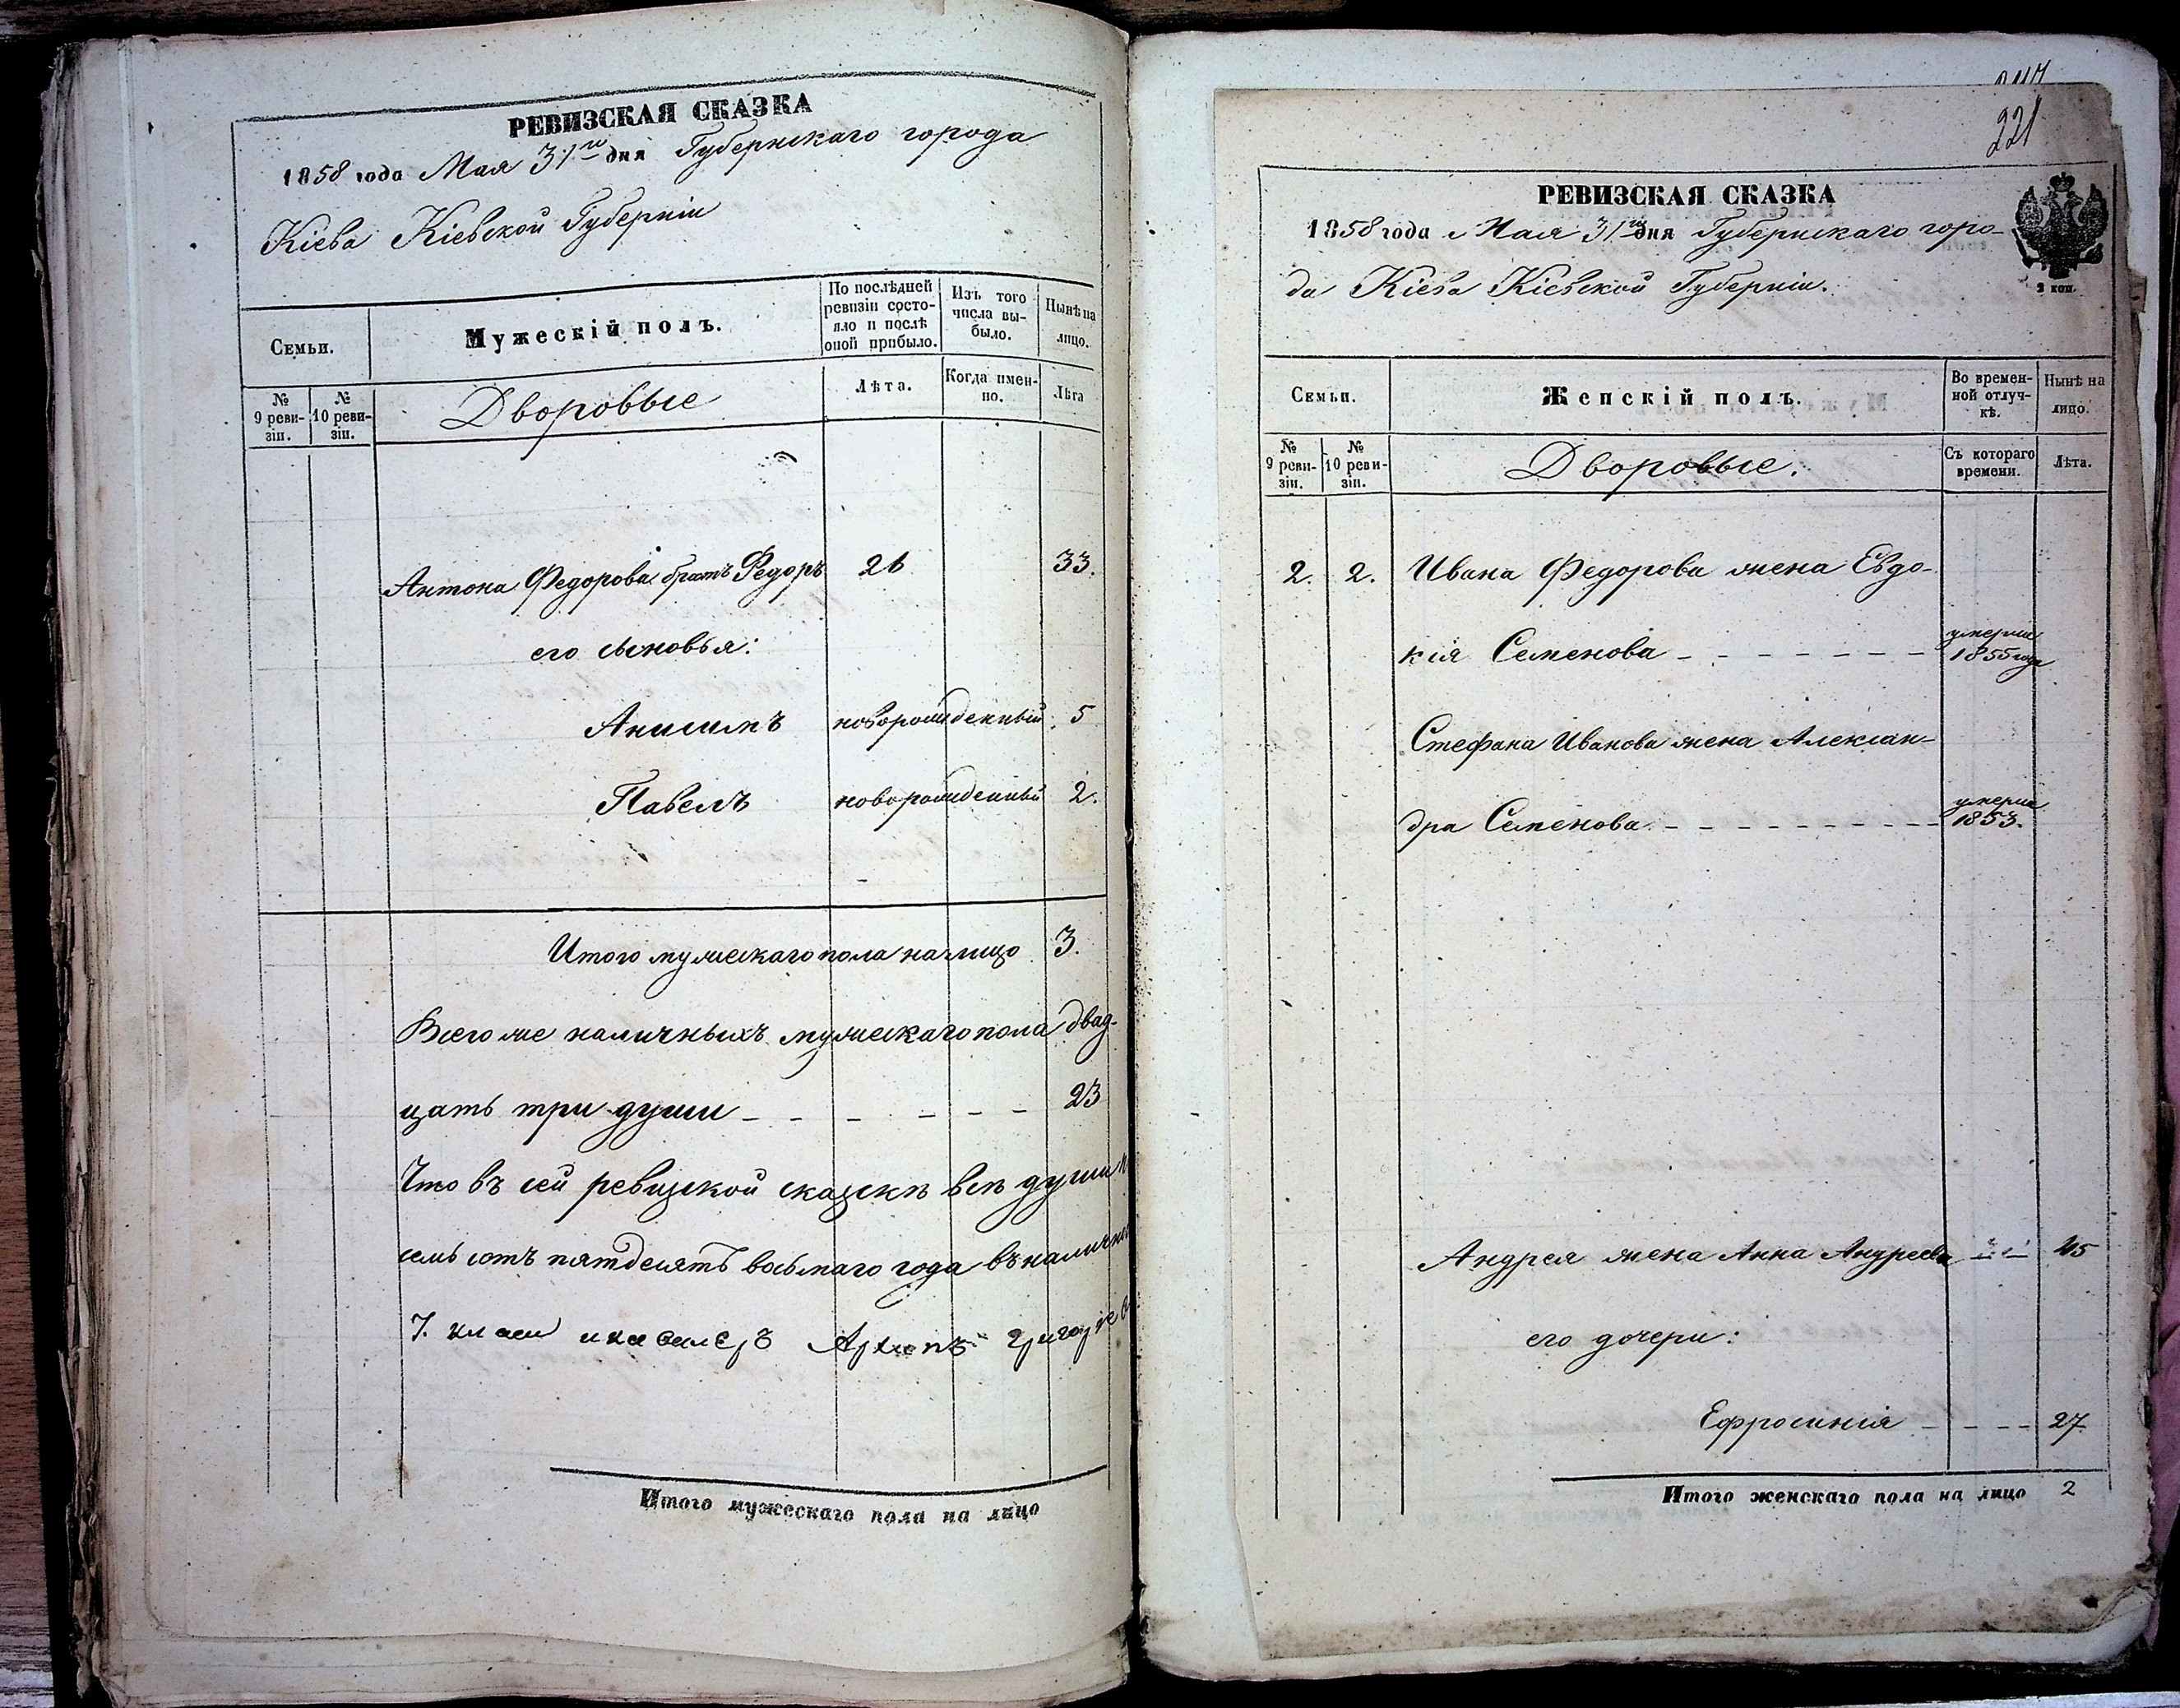 РЕВИЗСКАЯ СКАЗКА
1858 года Мая 31го дня Губернскаго города
Кіева Кіевской Губерніи
Семьи.
Мужескій полъ.
По послѣдней
ревизіи состо-
яло и послѣ
оной прибыло.
Изъ того
числа вы-
было.
Нынѣ на
лицо.
№
9 реви-
зіи.
№
10 реви-
зіи.
Дворовые
Лѣта.
Когда имен-
но.
Лѣта
Антона Федорова братъ Федоръ 26 33.
его сыновья:
Анисимъ новорожденный 5
Павелъ новорожденный 2.
Итого мужескаго пола налицо 3.
Всего же наличныхъ мужескаго пола двад-
цать три души – – – – – – 23
Что въ сей ревизской сказкѣ всѣ души
семь сотъ пятдесятъ восьмаго года въ налич
7. класи и кавалеръ
Итого мужескаго пола на лицо
221
РЕВИЗСКАЯ СКАЗКА
1858 года Мая 31го дня Губернскаго горо-
да Кіева Кіевской Губерніи.
2 коп.
Семьи.
Женскій полъ.
Во времен-
ной отлуч-
кѣ.
Нынѣ на
лицо.
№
9 реви-
зіи.
№
10 реви-
зіи.
Дворовые.
Съ котораго
времени.
Лѣта.
2. 2. Ивана Федорова жена Евдо-
кія Семенова – – – – – – – умерла 1855 года
Стефана Иванова жена Алексан-
дра Семенова – – – – – – – – – – умерла 1853.
Андрея жена Анна Андреева 45
его дочери:
Ефросинія – – – – 27
Итого женскаго пола на лицо 2